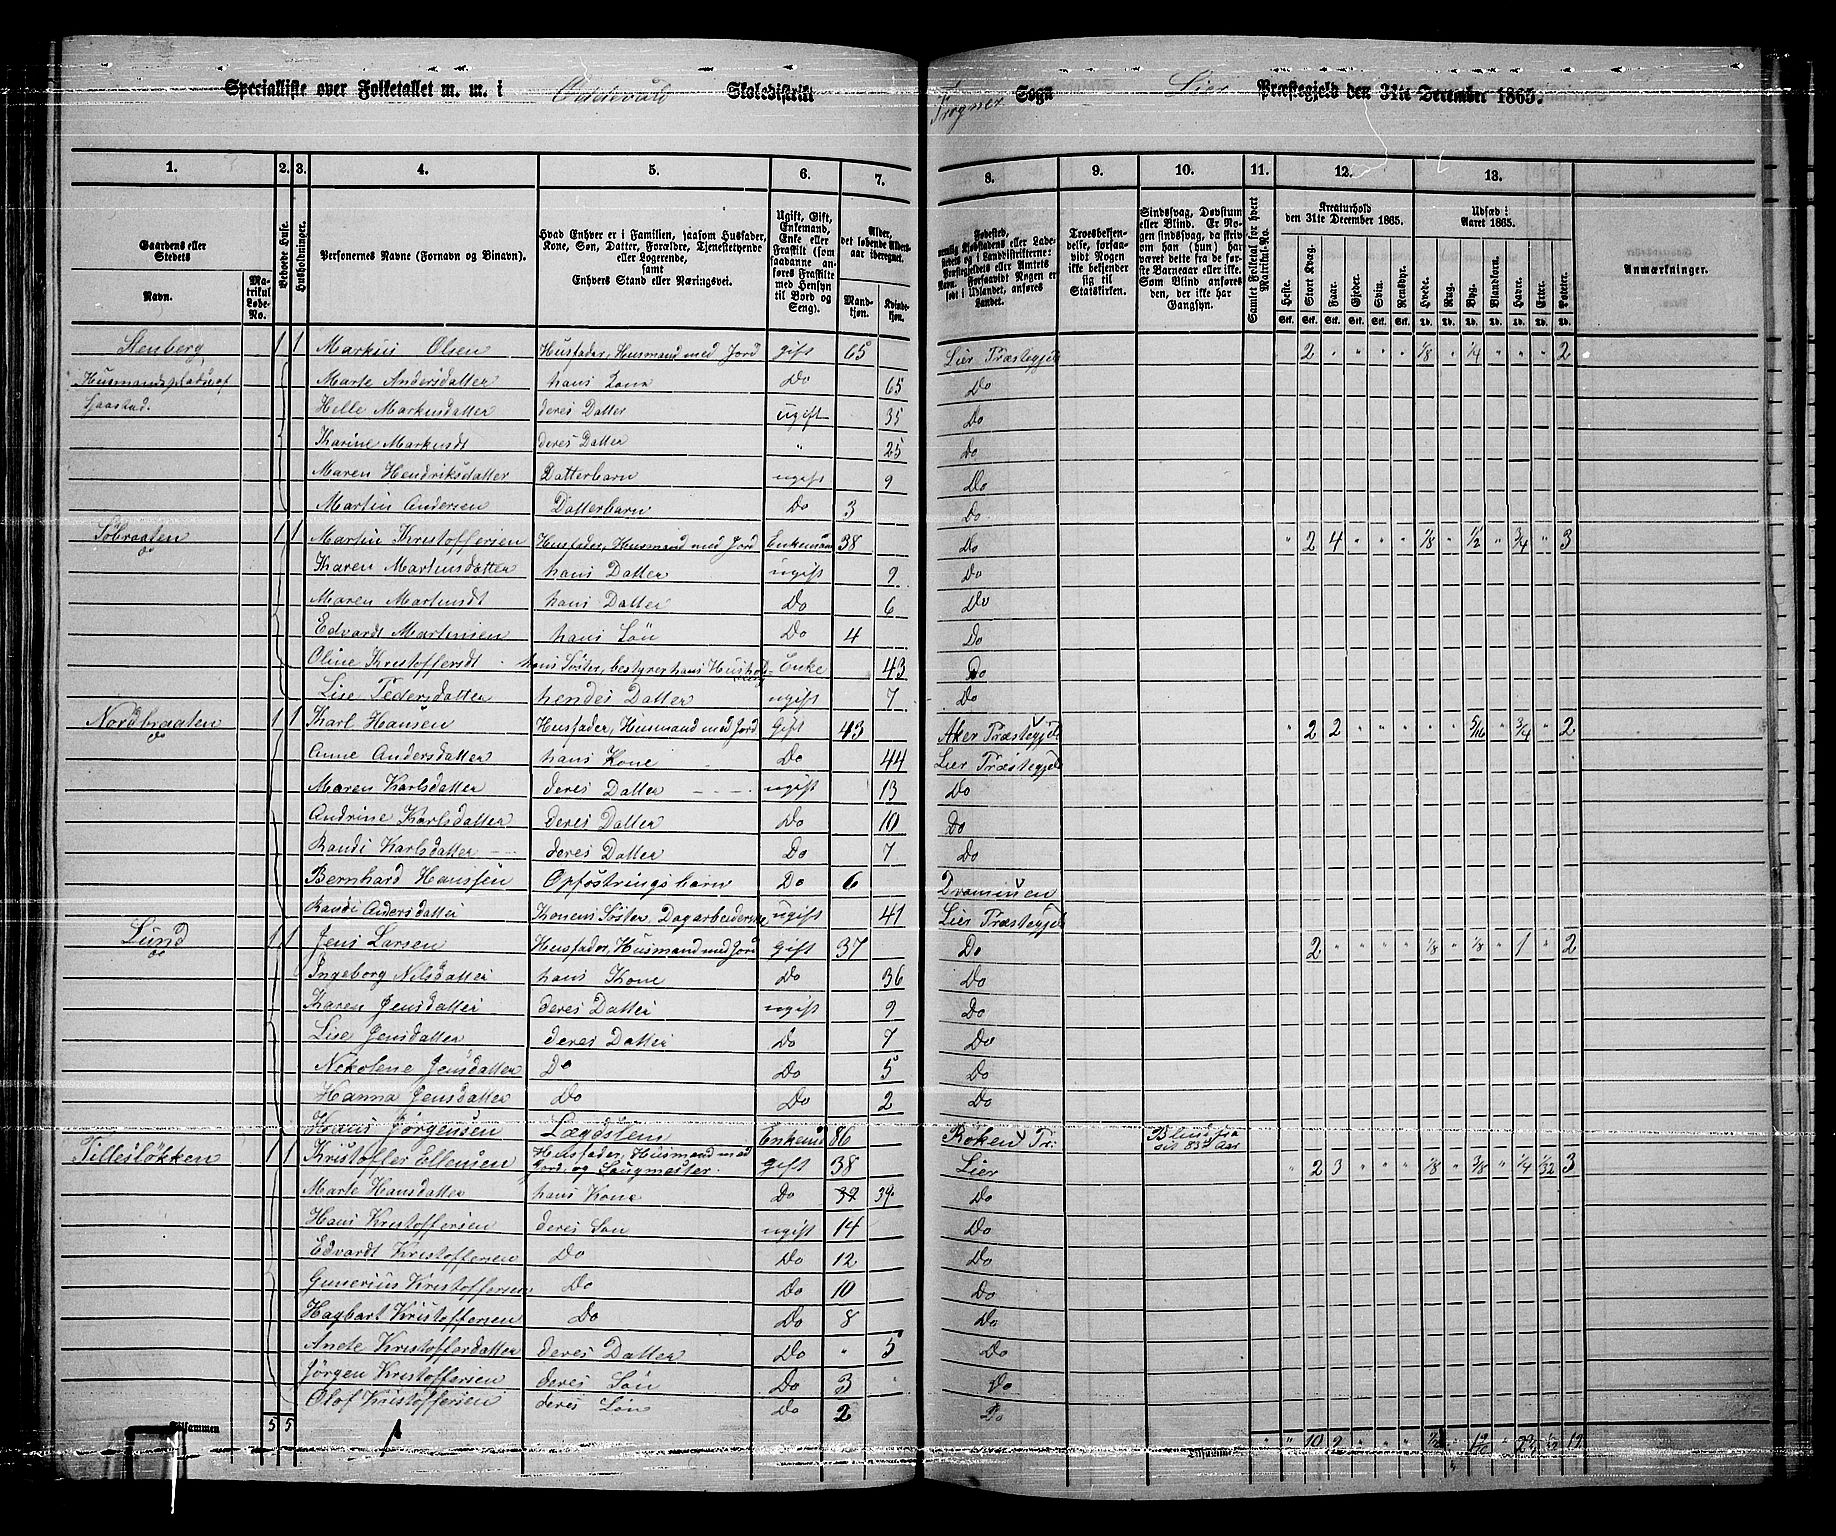 Specialliste over Folketallet m. m. i Oddevald Skoledistrikt Frogner Sogn Lier Præstegjeld den 31te December 1865.
1. 2. 3. 4. 5. 6. 7. 8. 9. 10. 11. 12. 13.
Gaardens eller Stedets
Navn.
Matrikul Løbe-No.
Beboede Huse.
Husholdninger.
Personernes Navne (Fornavn og Binavn).
Hvad Enhver er i Familien, saasom Husfader, Kone, Søn, Datter, Forældre, Tjenestetyende eller Logerende, samt Enhvers Stand eller Næringsvei.
Ugift, Gift, Enkemand, Enke eller Fraskilt (som saadanne anføres Fraskilte med Hensyn til Bord og Seng).
Alder, det løbende Alders-aar iberegnet.
Mandkjøn. Kvindekjøn.
Troesbekjendelse, forsaavidt Nogen ikke bekjender sig til Statskirken.
Sindssvag, Døvstum eller Blind. Er Nogen sindssvag, da skrives om han (hun) har været dette fra de første Barneaar eller ikke. Som Blind anføres den, der ikke har Gangsyn.
Samlet Folketal for hvert Matrikul-No.
Kreaturhold den 31te December 1865.
Heste. Stort Kvæg. Faar. Gjeder. Svin. Rensdyr.
Udsæd i Aaret 1865.
Hvede. Rug. Byg. Blandkorn. Havre. Erter. Poteter.
Anmærkninger.
Stenberg 1 1 Markus Olsen Husfader, Husmand med Jord gift 65 Lier Præstegjeld 2 " " " " 1/8 " 1/4 " " " 2
Husmandsplads af Marte Andersdatter hans Kone Do 65 Do
Sjaastad. Helle Markusdatter deres Datter ugift 35 Do
Karine Markusdt deres Datter " 25 Do
Maren Hendriksdatter Datterbarn ugift 9 Do
Martin Andersen Datterbarn Do 3 Do
Sobraaten do 1 1 Martin Kristoffersen Husfader, Husmand med Jord Enkemand 38 Do " 2 4 " " " 1/8 " 1/2 " 3/4 " 3
Karen Martinsdatter hans Datter ugift 9 Do
Maren Martinsdt hans Datter Do 6 Do
Edvardt Martinsen hans Søn Do 4 Do
Oline Kristoffersdt hans Søster, bestyrer hans Husholdning Enke 43 Do
Lise Pedersdatter hendes Datter ugift 7 Do
Nordbraaten do 1 1 Karl Hansen Husfader, Husmand med Jord Gift 43 Aker Præstegjeld " 2 2 " " " " " 5/16 " 3/4 " 2
Anne Andersdatter hans Kone Do 44 Lier Præstegjeld
Maren Karlsdatter deres Datter ugift 13 Do
Andrine Karlsdatter deres Datter Do 10 Do
Randi Karlsdatter deres Datter Do 7 Do
Bernhard Hanssen Opfostringsbarn Do 6 Drammen
Randi Andersdatter Konens Søster, Dagarbeiderske ugift 41 Lier Præstegjeld
Lund do 1 1 Jens Larsen Husfader, Husmand med Jord gift 37 Do 2 " " " " 1/8 " 1/8 " 1 " 2
Ingeborg Nilsdatter hans Kone Do 36 Do
Karen Jensdatter deres Datter ugift 9 Do
Lise Jensdatter deres Datter Do 7 Do
Nikolene Jensdatter Do Do 5 Do
Hanna Jensdatter Do Do 2 Do
Hans Jørgensen Lægdslem Enkemd 86 Røken Pr: Blind fra
Tillesløkken 1 1 Kristoffer Ellensen Husfader, Husmand med Jord, og Saugmester. gift 38 Lier " 2 3 " " " 1/8 " 3/8 " 1/4 1/32 3
Marte Hansdatter hans Kone Do 39 39 Do
Hans Kristoffersen deres Søn ugift 14 Do
Edvardt Kristoffersen Do Do 12 Do
Gunerius Kristoffersen Do Do 10 Do
Hagbart Kristoffersen Do Do 8 Do
Anete Kristoffersdatter deres Datter Do " 5 Do
Jørgen Kristoffersen deres Søn Do 3 Do
Olof Kristoffersen deres Søn Do 2 Do
Tilsammen 5 5
Tilsammen " 10